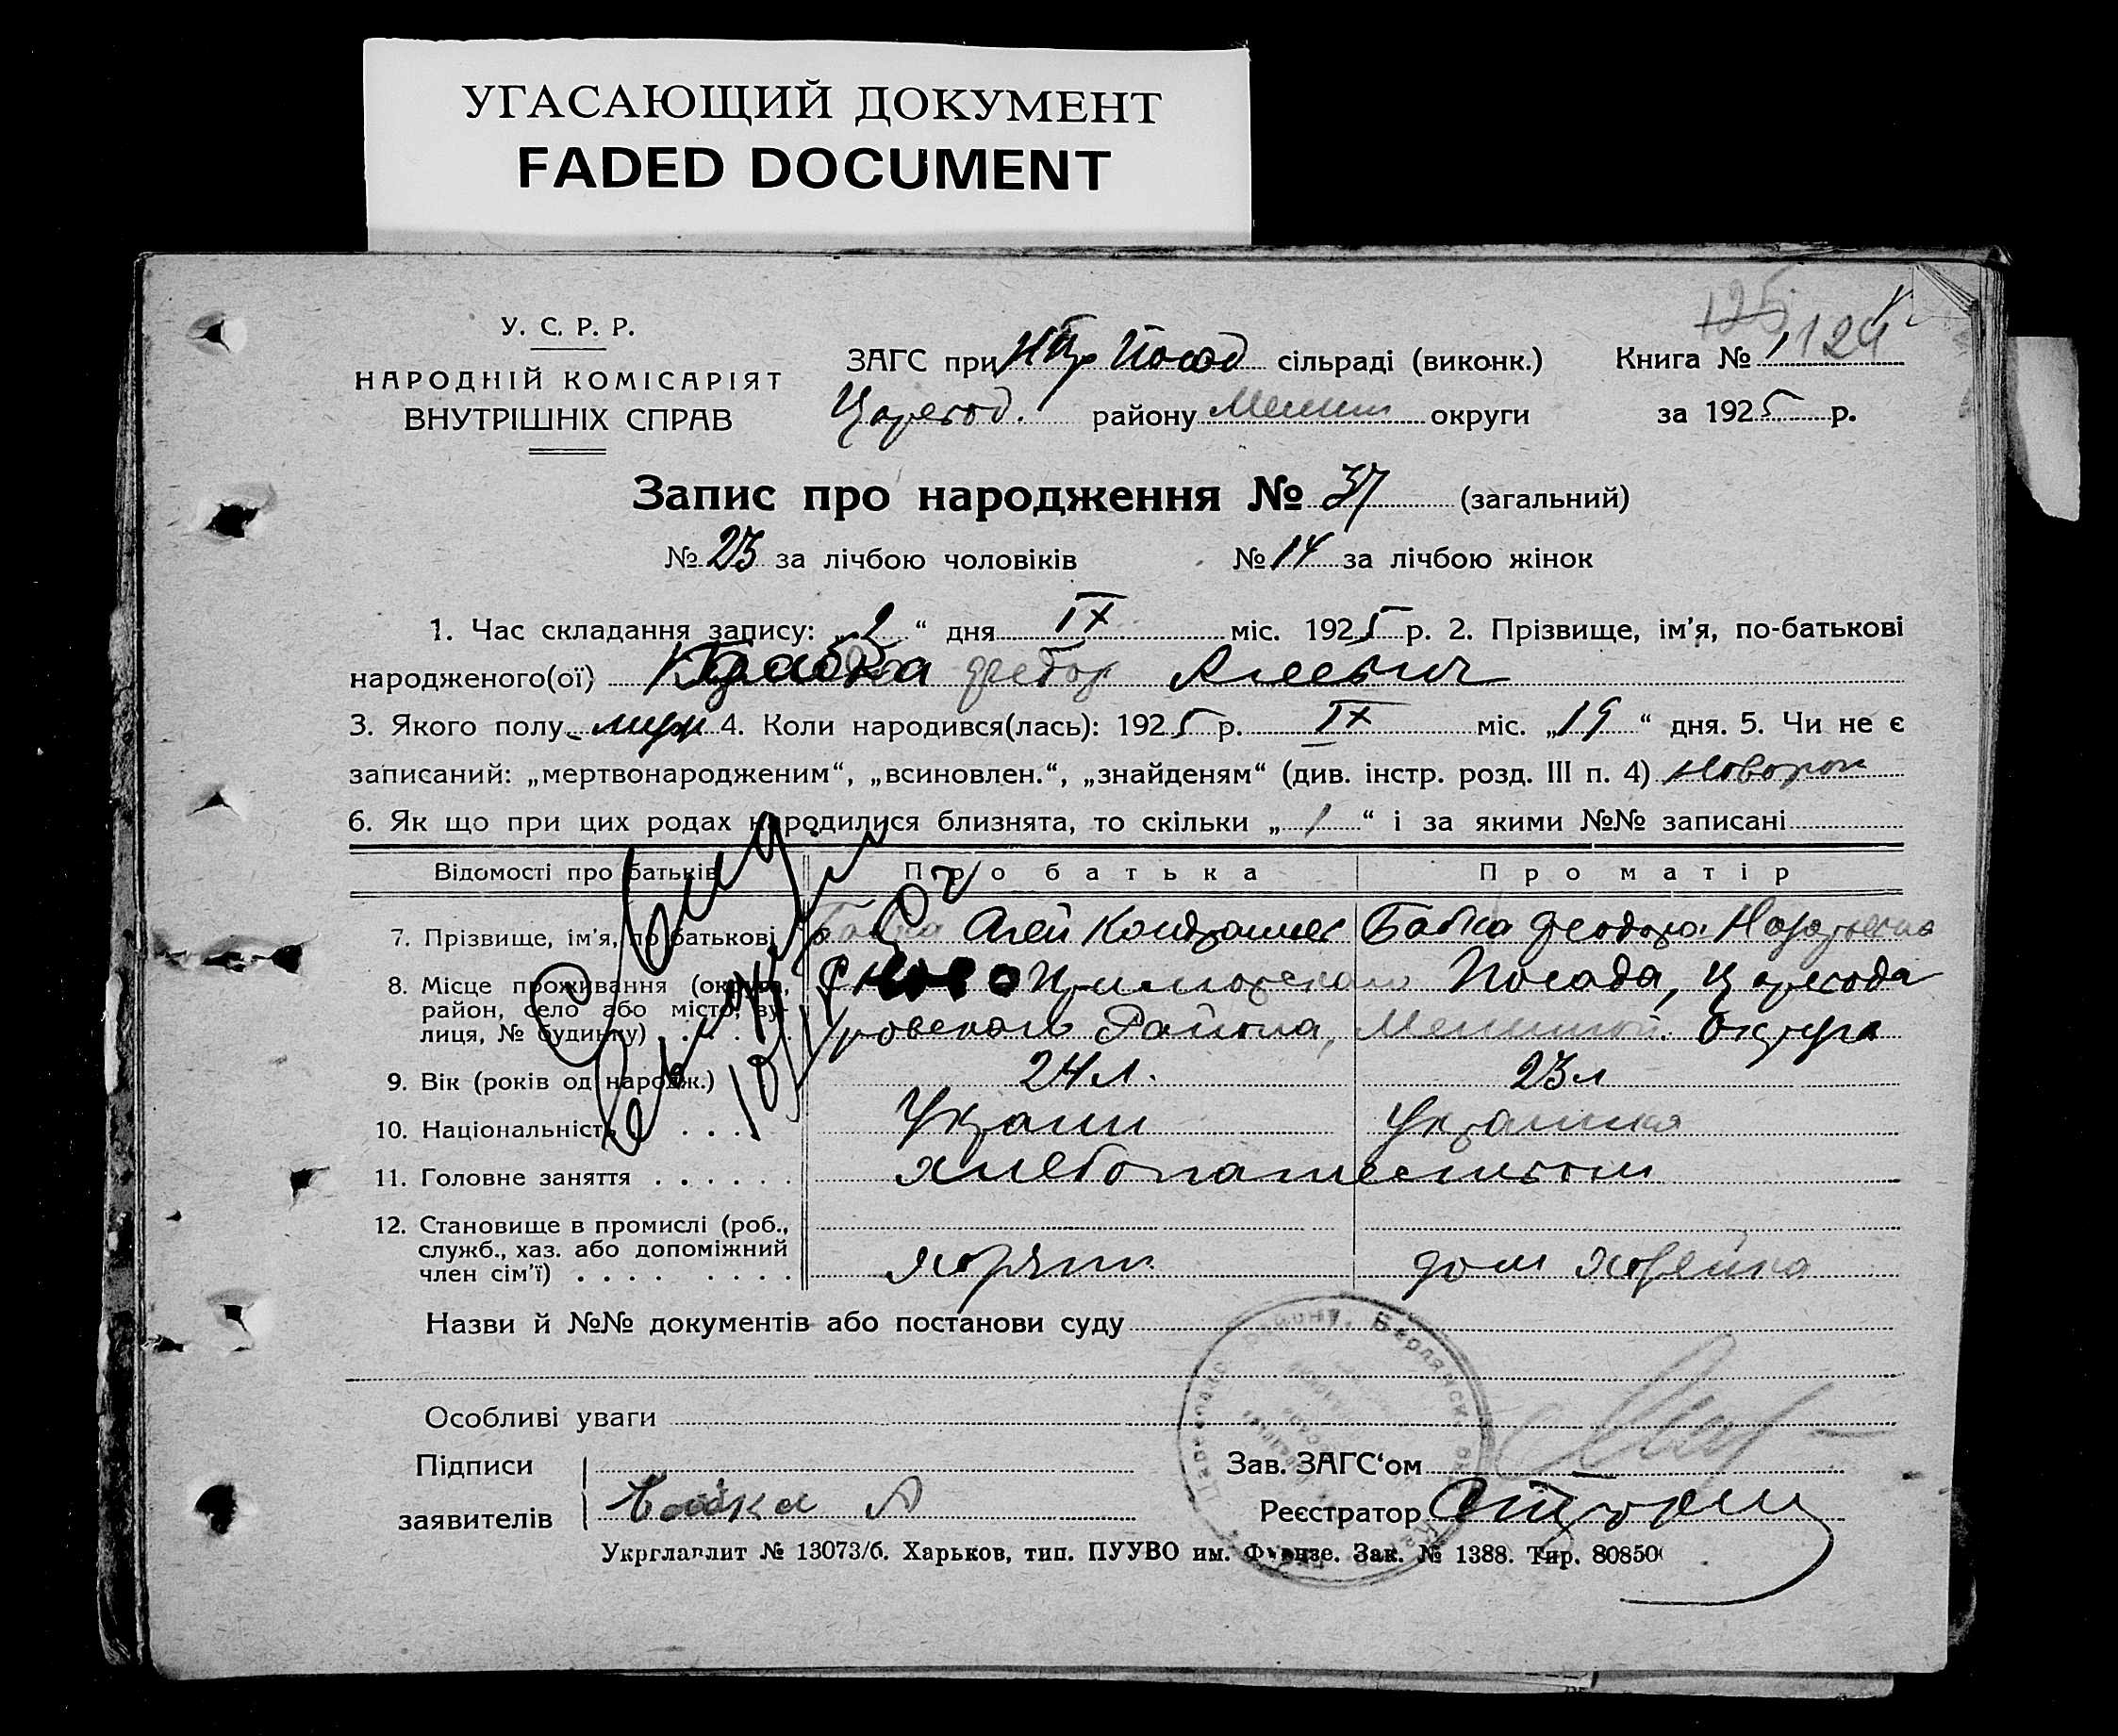 УГАСАЮЩИЙ ДОКУМЕНТ
FADED DOCUMENT
125
У. С. Р. Р.
НАРОДНІЙ КОМІСАРІЯТ
ВНУТРІШНІХ СПРАВ
ЗАГС при Посад сільраді (виконк.) Книга № 124
Царевод. району Мелит округи за 1925 р.
Запис про народження № 37 (загальний)
№ 23 за лічбою чоловіків № 14 за лічбою жінок
1. Час складання запису: „ “ дня IX міс. 1925 р. 2. Прізвище, ім'я, по-батькові
народженого(ої)
3. Якого полу муж 4. Коли народився(лась): 1925 р. IX міс. „19“ дня. 5. Чи не є
записаний: „мертвонародженим“, „всиновлен.“, „знайденям“ (див. інстр. розд. III п. 4) новорож
6. Як що при цих родах народилися близнята, то скільки „1“ і за якими №№ записані
Відомості про батьків Про батька Про матір
7. Прізвище, ім'я, по батькові Бабка Бабка Феодора
8. Місце проживання (округа, Посада, Царевода
район, село або місто, ву- Района, округа
лиця, № будинку)
9. Вік (років од народж.) 24 л. 23 л
10. Національність Украин Украинка
11. Головне заняття хлебопашеством
12. Становище в промислі (роб.,
служб., хаз. або допоміжний
член сім'ї) дом хозяйка
Назви й №№ документів або постанови суду
Особливі уваги
Підписи Зав. ЗАГС‘ом
заявителів Бабка А Реєстратор
Укрглавлит № 13073/б. Харьков, тип. ПУУВО им. Фрунзе. Зак. № 1388. Тир. 80850